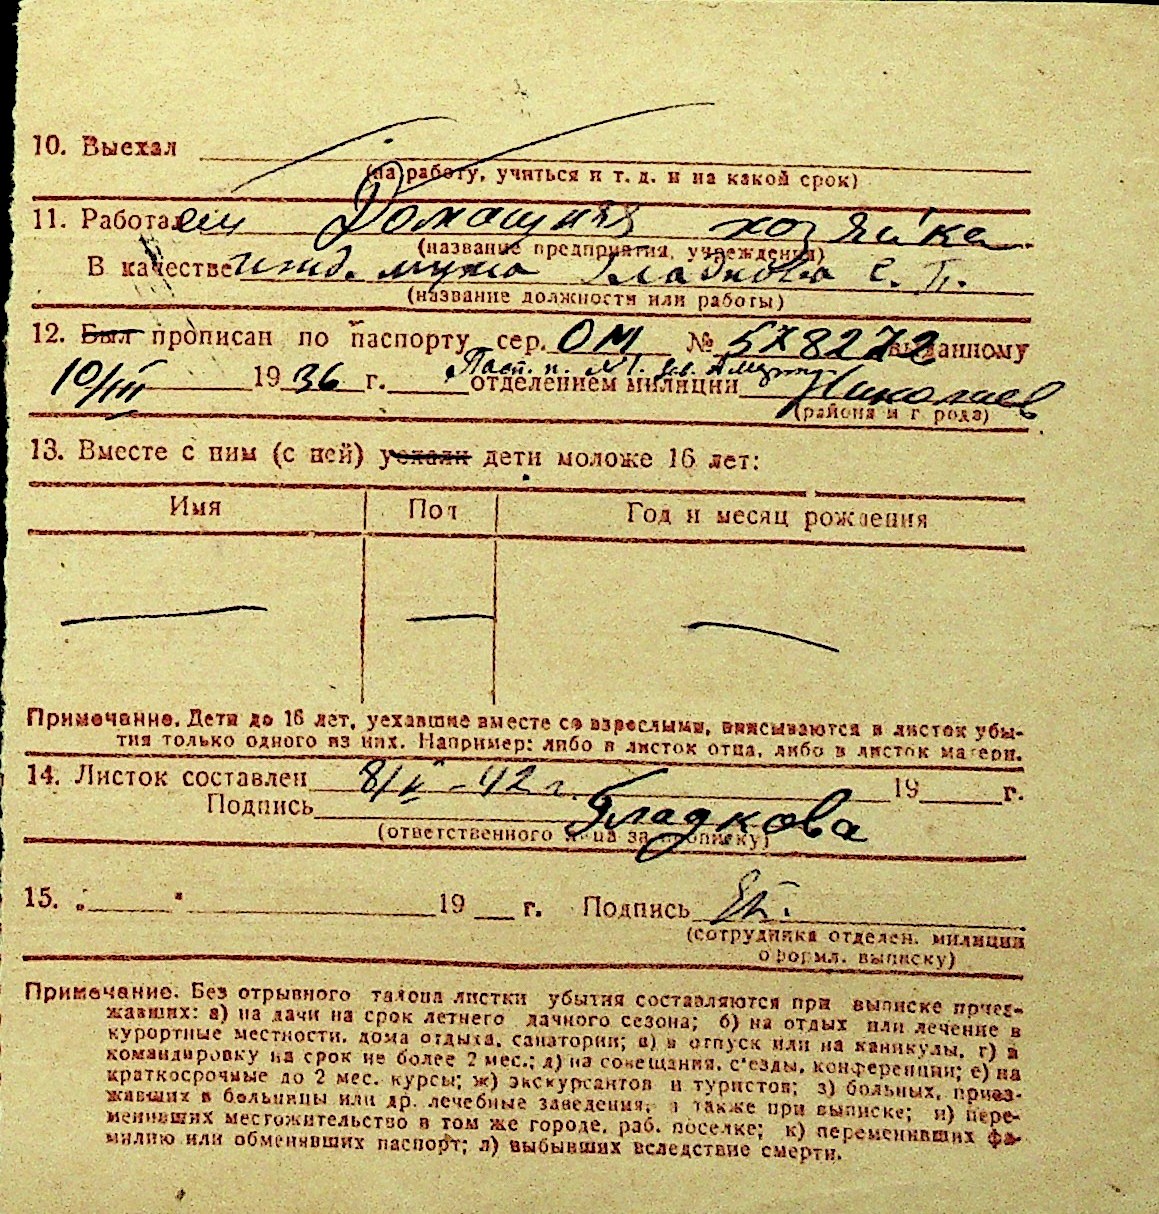 10. Выехал
(на работу, учиться и т. д. и на какой срок)
11. Работал Домашняя хозяйка
(название предприятия, учреждения)
В качестве ижд. мужа Гладкова С. П.
(название должности или работы)
12. Был прописан по паспорту сер. ОМ № 578272 выданному
Пасп. п.
10/III 1936 г. отделением милиции Николаев
(района и города)
13. Вместе с ним (с ней) уехали дети моложе 16 лет:
Имя Пол Год и месяц рождения
— — —
Примечание. Дети до 16 лет, уехавшие вместе со взрослыми, вписываются в листок убы-
тия только одного из них. Например: либо в листок отца, либо в листок матери.
14. Листок составлен -42 г. 19 г.
Подпись Гладкова
(ответственного лица за прописку)
15. „ " 19 г. Подпись
(сотрудника отделен. милиции
оформл. выписку)
Примечание. Без отрывного талона листки убытия составляются при выписке приез-
жавших: а) на дачи на срок летнего дачного сезона; б) на отдых или лечение в
курортные местности, дома отдыха, санатории; в) в отпуск или на каникулы, г) в
командировку на срок не более 2 мес.; д) на совещания, съезды, конференции; е) на
краткосрочные до 2 мес. курсы; ж) экскурсантов и туристов; з) больных, приез-
жавших в больницы или др. лечебные заведения, а также при выписке; и) пере-
менивших местожительство в том же городе, раб. поселке; к) переменивших фа-
милию или обменявших паспорт; л) выбывших вследствие смерти.